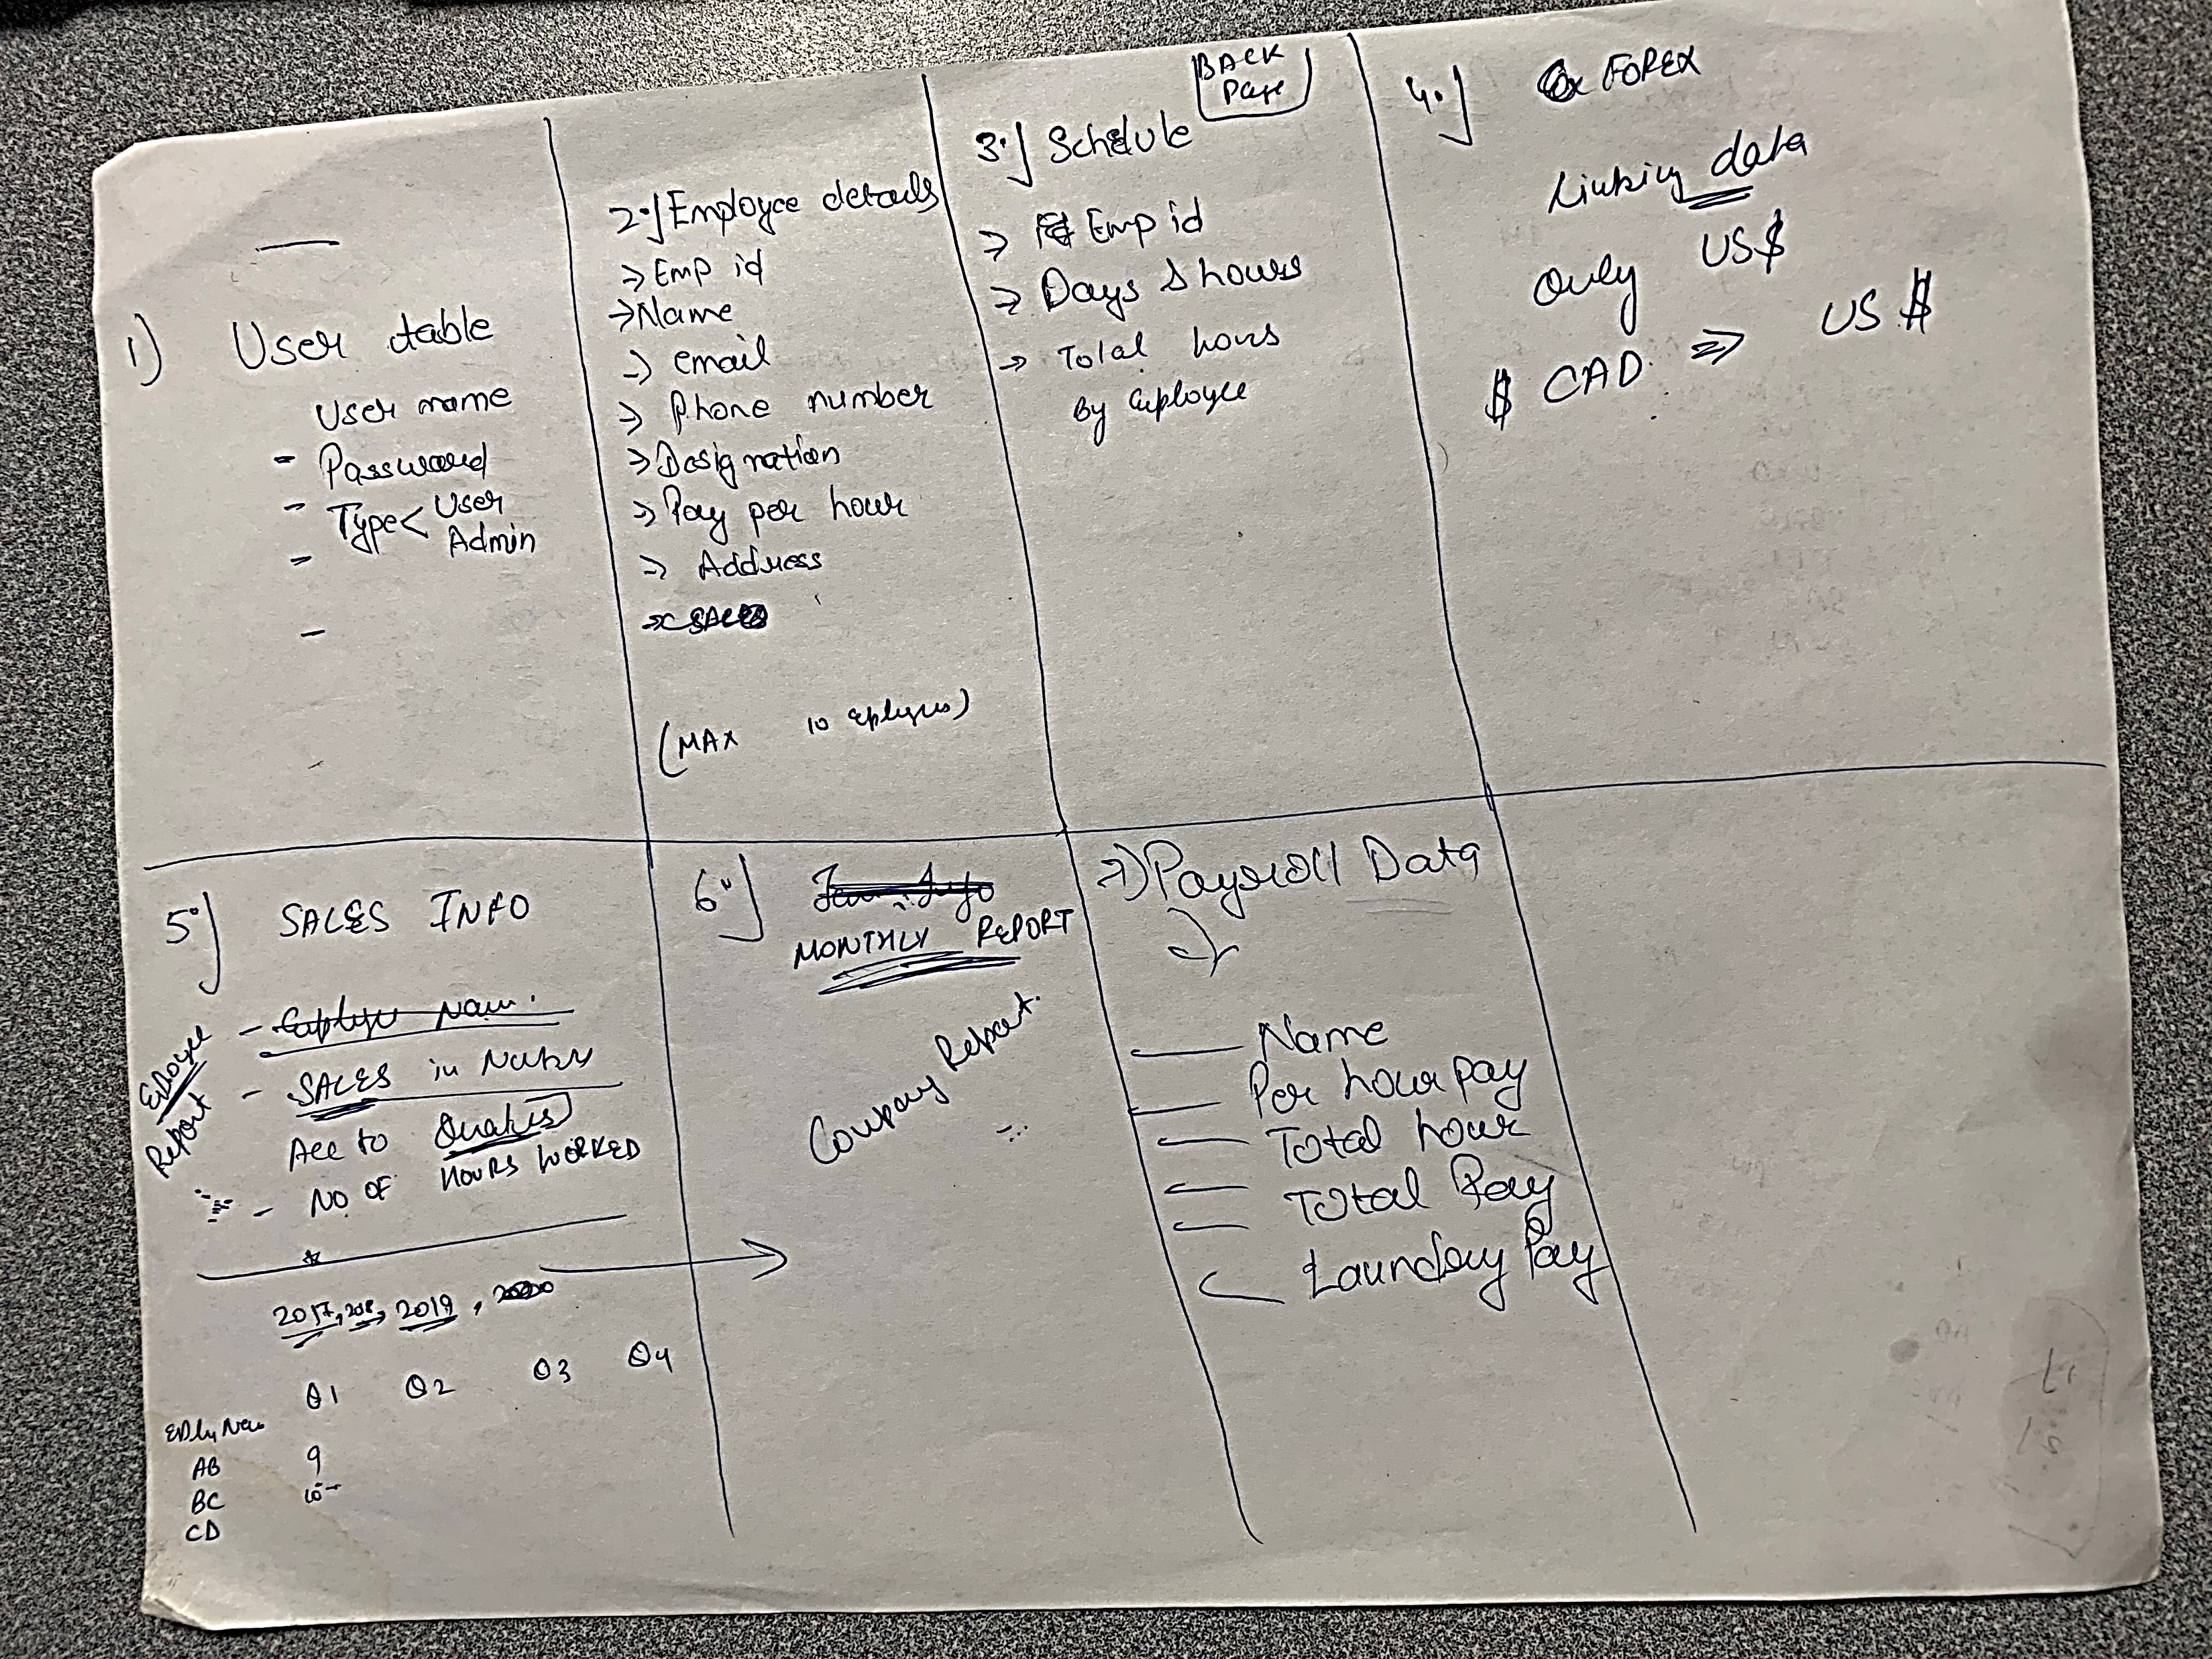 BACK
Page
1) User table
User name
- Password
- Type < User
Admin
-
-
2.] Employee details
→ Emp id
→ Name
→ email
→ Phone number
→ Designation
→ Pay per hour
→ Address
(MAX 10
3.] Schedule
⇒ Emp id
⇒ Days & hours
→ Total hours
By Employee
4.] FOREX
Linking data
Only US$
$ CAD ⇒ US $
5.] SALES INFO
Report
- SALES in
Acc to
- NO OF HOURS WORKED
2017, 2018, 2019,
Q1 Q2 Q3 Q4
AB 9
BC 10
CD
6.]
MONTHLY REPORT
Company Report.
7) Payroll Data
Name
Per hour pay
Total hour
Total Pay
Laundry Pay